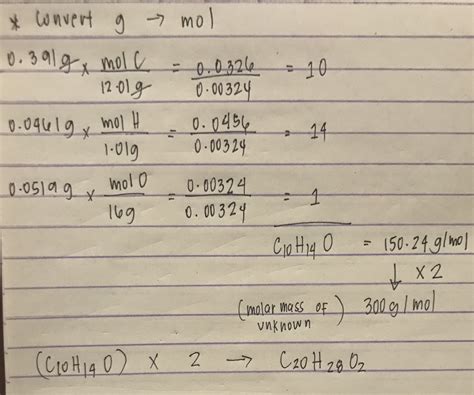 * Convert g → mol
0.391g × mol C / 12.01g = 0.0326 / 0.00324 = 10
0.0461g × mol H / 1.01g = 0.0456 / 0.00324 = 14
0.0519g × mol O / 16g = 0.00324 / 0.00324 = 1
C10H14O = 150.24 g/mol
↓ × 2
(molar mass of unknown) 300g/mol
(C10H14O) × 2 → C20H28O2